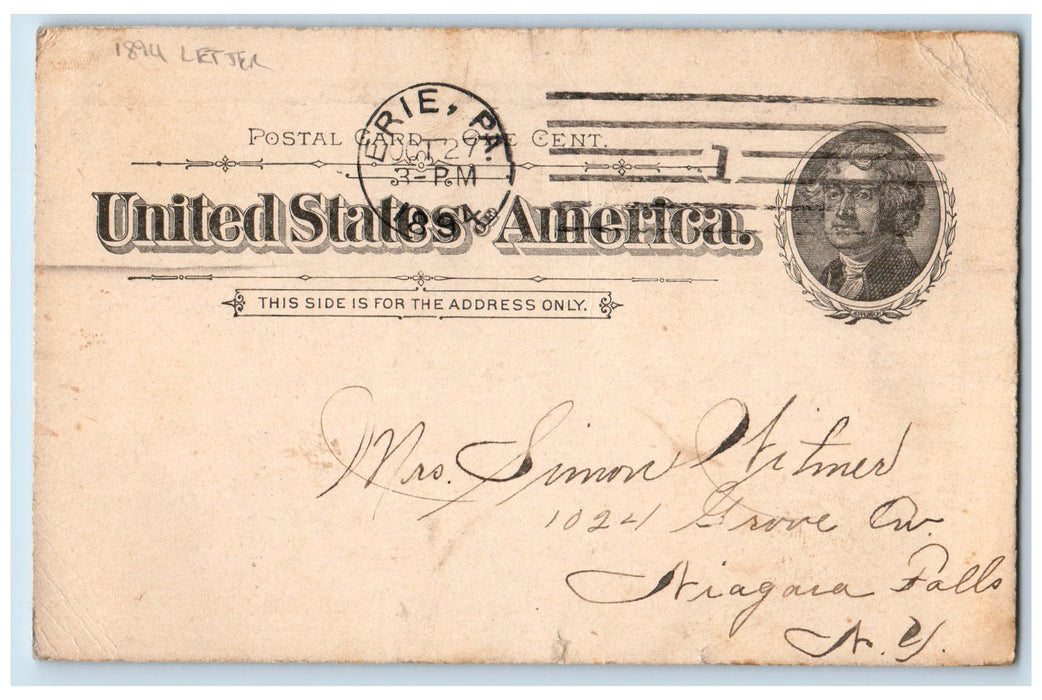 1894 LETTER
ERIE, PA.
OCT 27
3-PM
1894
1
POSTAL CARD — ONE CENT.
United States of America.
THIS SIDE IS FOR THE ADDRESS ONLY.
Mrs. Simon Witmer
1024 Grove Av.
Niagara Falls
N. Y.